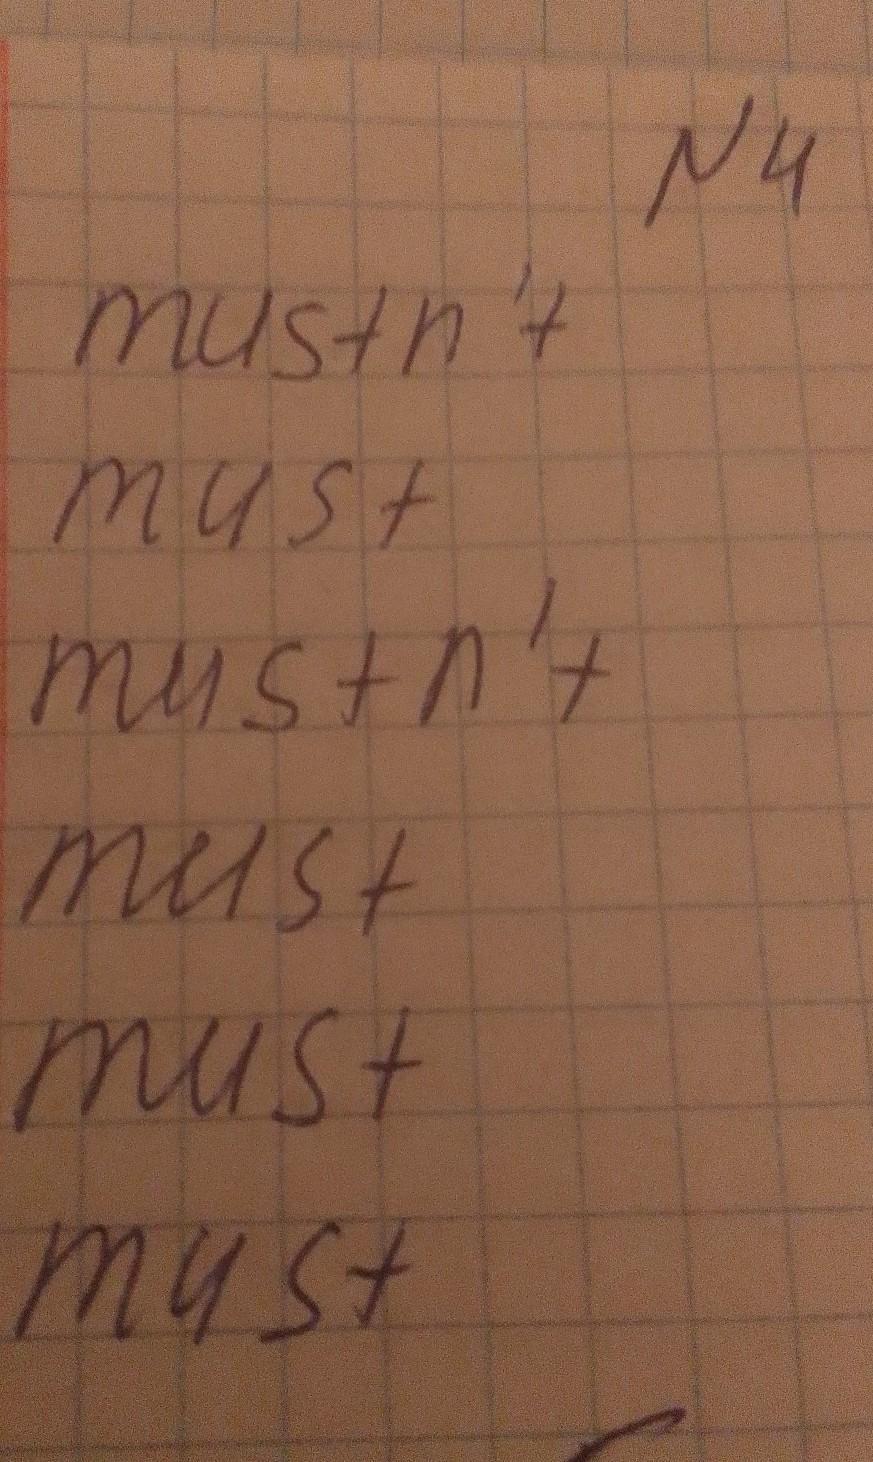 N4
mustn't
must
mustn't
must
must
must